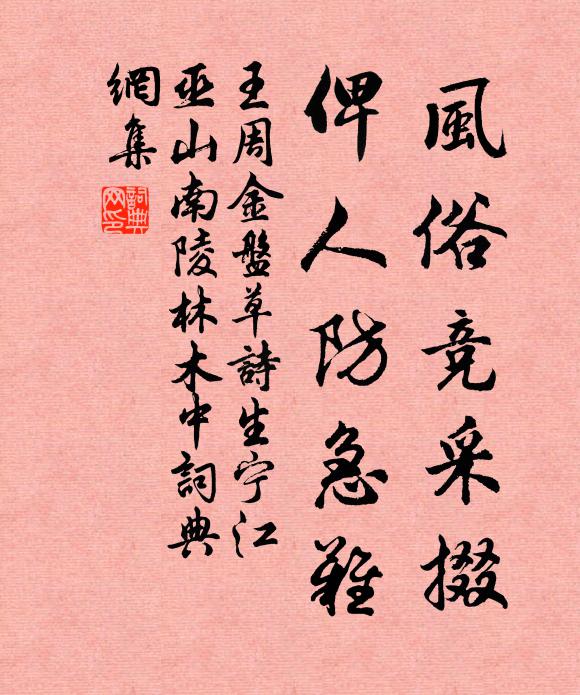 風俗竞采掇
俾人防急難
王周金盤草詩生宁江
巫山南陵林木中詞典
網集
詞典
网印